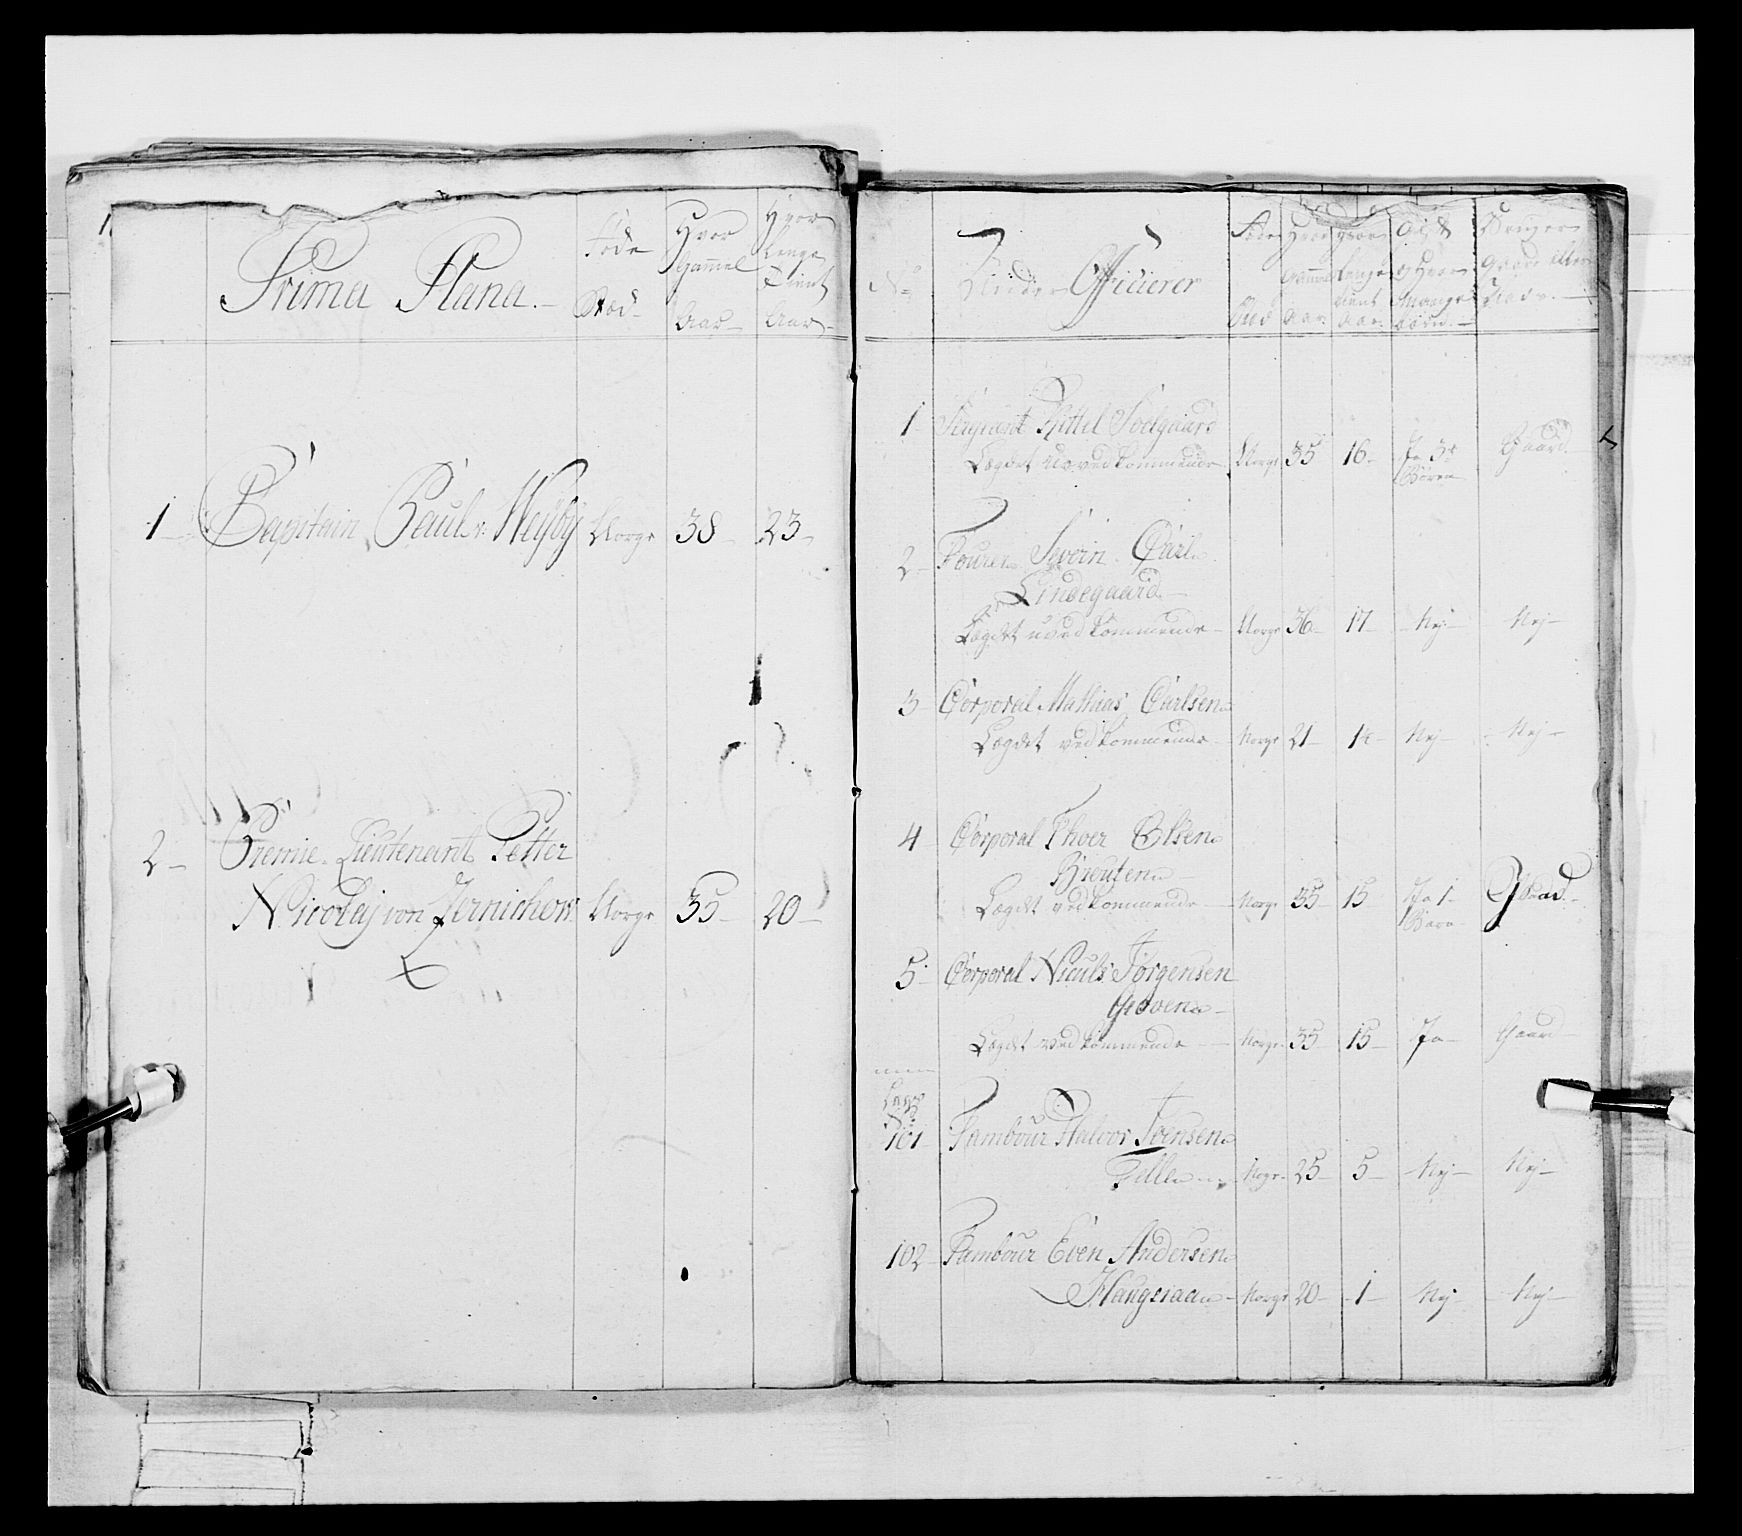 Prima Plana.
Føde Stæd
Hvor Gammel Aar
Hvor Lenge Tient Aar
1 Capitain Paul v: Weÿby Norge 38 23
2 Premie Lieutenant Petter
Nicolaj von Jernichow Norge 35 20
No Under Officierer
Føde Stæd
Hvor Gammel Aar
Hvor Lenge tient Aar
Gift og Hvor Mange Børn
Bruger Gaard Eller
1 Sergiant Kittel Soelgaard
Lægdet uvedkommende Norge 35 16 Ja 3e
Børen Gaard
2 Fourer Sevrin Carl
Lindegaard
Lægdet uvedkommende Norge 36 17 Nej Nej
3 Corporal Mathias Carlsen
Lægdet vedkommende Norge 21 1 Nej Nej
4 Corporal Thoer Olsen
Breuten
Lægdet vedkommende Norge 35 15 Ja 1
Barn Gaad
5 Corporal Niculs Jørgensen
Groven
Lægdet vedkommende Norge 35 15 Ja Gaard
Lægd
No
101 Tambour Halvor Joensen
Felle Norge 25 5 Nej Nej
102 Tambour Even Andersen
Haugeraa Norge 20 1 Nej Nej